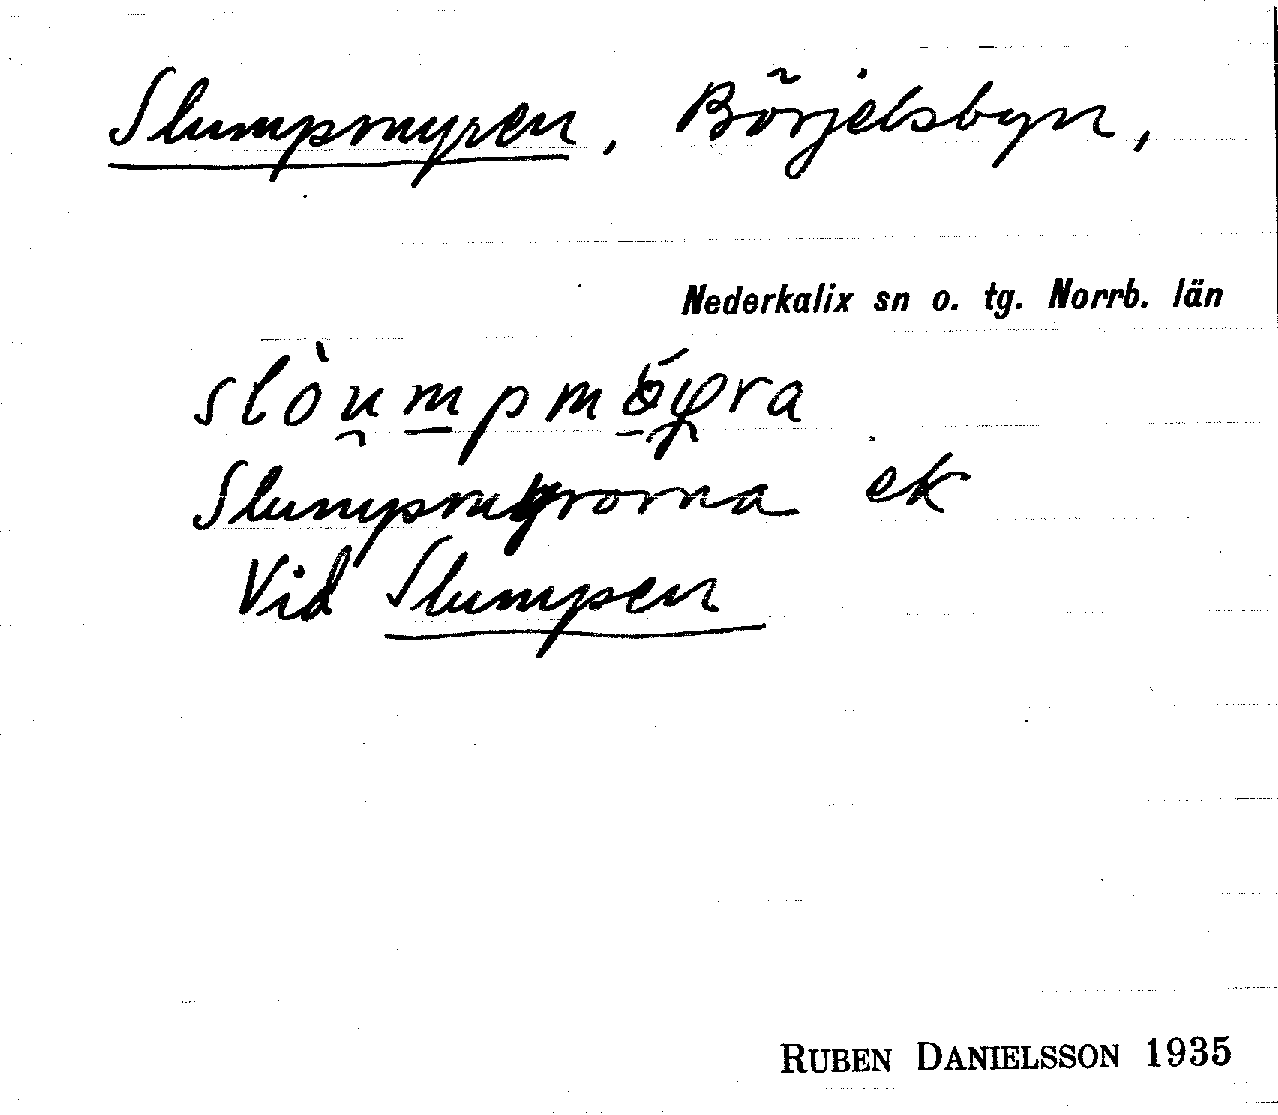 Slumpmyren, Börjelsbyn,
Nederkalix sn o. tg. Norrb. län
Slumpmyrorna ek
Vid Slumpen
RUBEN DANIELSSON 1935